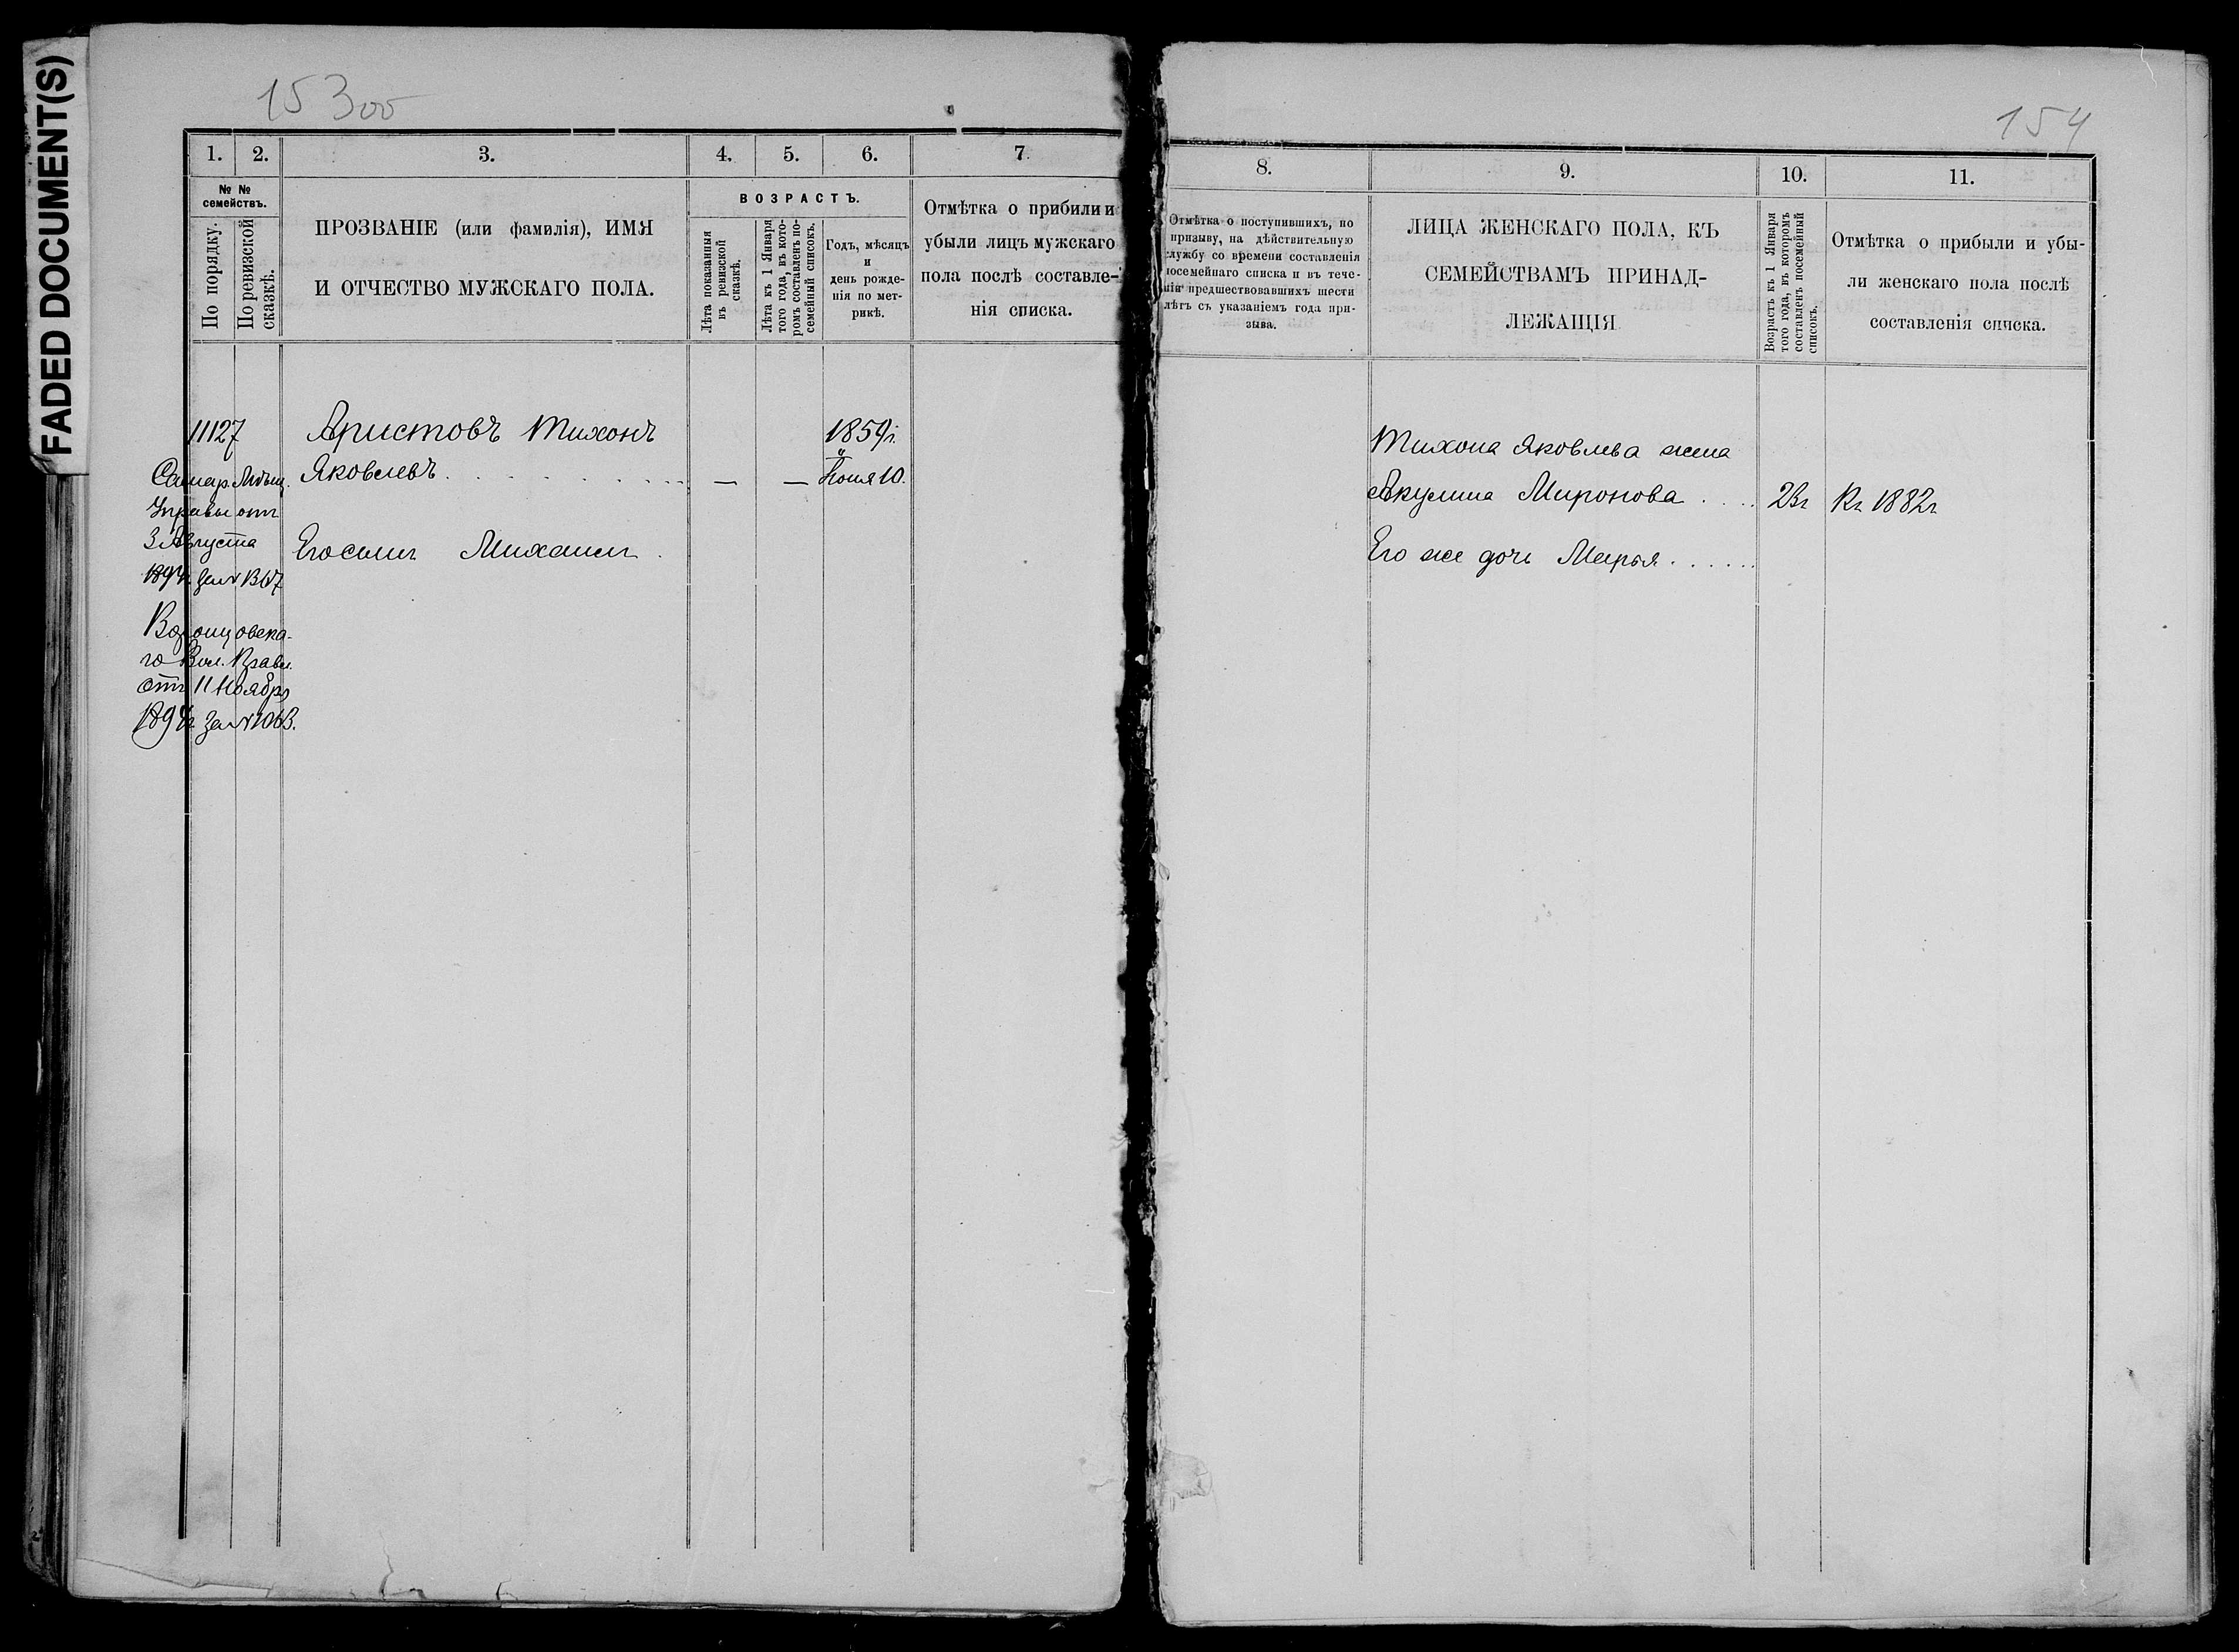 FADED DOCUMENT(S)
153об
154
1. 2. 3. 4. 5. 6. 7.
№ № семействъ.
По порядку.
По ревизской сказкѣ.
ПРОЗВАНІЕ (или фамилія), ИМЯ
И ОТЧЕСТВО МУЖСКАГО ПОЛА.
ВОЗРАСТЪ.
Лѣта показанныя
въ ревизской
сказкѣ.
Лѣта къ 1 Января
того года, въ кото-
ромъ составленъ по-
семейный списокъ.
Годъ, мѣсяцъ
и
день рожде-
нія по мет-
рикѣ.
Отмѣтка о прибыли и
убыли лицъ мужскаго
пола послѣ составле-
нія списка.
11127
Самар. Мѣщ.
Управы отъ
3 Августа
Аристовъ Тихонъ
Яковлевъ . . . . . . . . — —
1859г.
Іюня 10.
Его сынъ Михаилъ .
Воронцовска-
го Вол. Правл.
отъ 11 Ноября
8. 9. 10. 11.
Отмѣтка о поступившихъ, по
призыву, на дѣйствительную
службу со времени составленія
посемейнаго списка и въ тече-
нія предшествовавшихъ шести
лѣтъ съ указаніемъ года при-
зыва.
ЛИЦА ЖЕНСКАГО ПОЛА, КЪ
СЕМЕЙСТВАМЪ ПРИНАД-
ЛЕЖАЩІЯ
Возрастъ къ 1 Января
того года, въ которомъ
составленъ посемейный
списокъ.
Отмѣтка о прибыли и убы-
ли женскаго пола послѣ
составленія списка.
Тихона Яковлева жена
Акулина Миронова . . . . 23г Къ 1882г
Его же дочь Марья . . . . . .